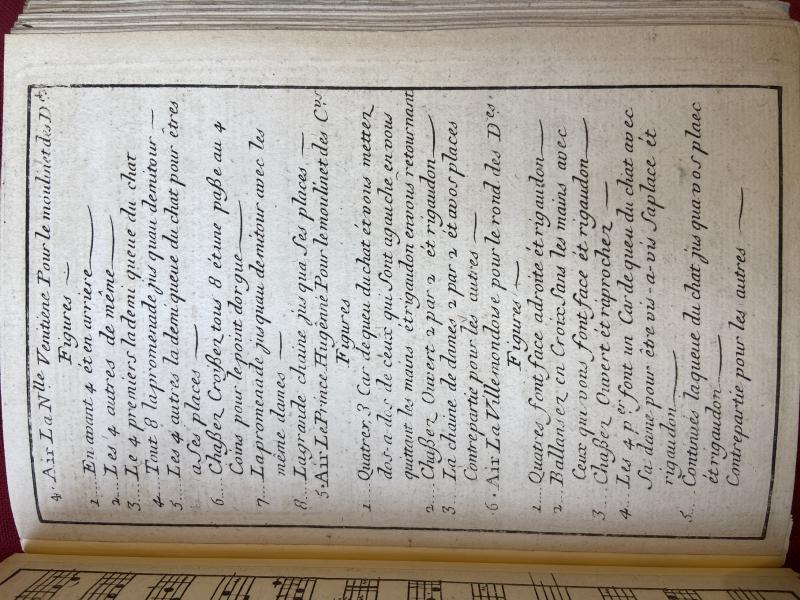 4. Air La Nlle Ventiene Pour le moulinet des Des
Figures
1... En avant 4 et en arriere
2... Les 4 autres de même
3... Le 4 premiers la demi queue du chat
4... Tout 8 la promenade jus quau demitour
5... Les 4 autres la demi queue du chat pour êtres
a Ses places
6... Chaßez Croißez tous 8 ét une paße au 4
Coins pour le pont dorgue
7... La promenade jusquau demitour avec les
même dames
8... La grande chaine jusqua Ses places
5. Air Le Prince Hugenne Pour le moulinet des Crs
Figures
1... Quatrex 3 Car de queu du chat ét vous mettez
dos-a-dos de ceux qui sont agauche en vous
quittant les mains ét rigaudon en vous retournant
2... Chaßez Ouvert 2 par 2 ét rigaudon
3... La chaine de dames 2 par 2 ét a vos places
Contrepartie pour les autres
6. Air La Ville mondoise pour le rond des Des
Figures
1... Quatres font face adroite ét rigaudon
2... Ballansez en Croix Sans les mains avec
Ceux qui vous font face ét rigaudon
3... Chaßez Ouvert ét raprochez
4... Les 4 per font un Car de queu du chat avec
Sa dame pour être vis-a-vis Saplace ét
rigaudon
5... Continués la queue du chat jus qua vos plaec
ét rigaudon
Contrepartie pour les autres